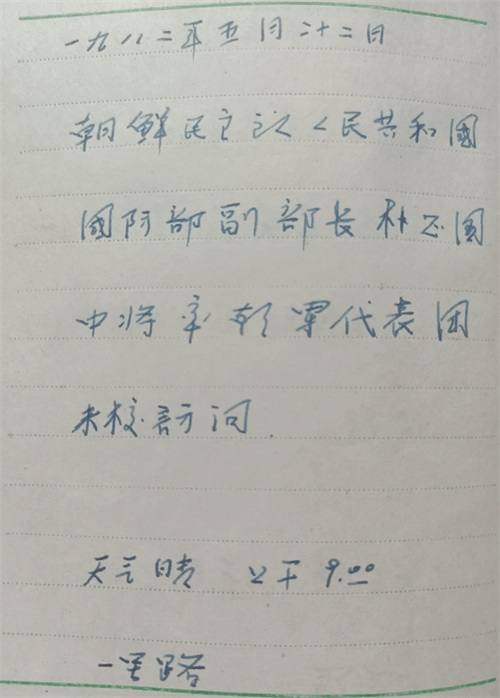 一九八二年五月二十二日
朝鲜民主主义人民共和國
國防部副部长朴正国
中将率朝军代表团
来校訪问.
天气晴 上午9.00
一笔路